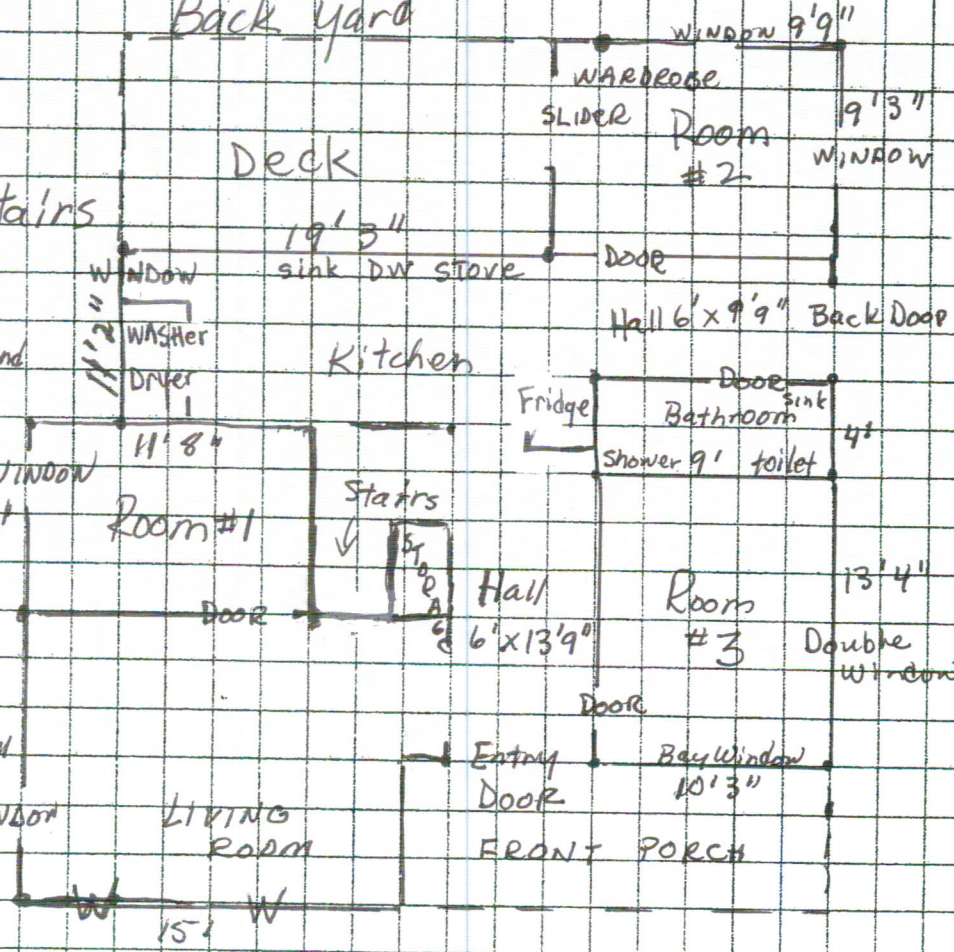 Back Yard
WINDOW 9'9"
WARDROBE
SLIDER
9'3"
Room
#2
WINDOW
Deck
tairs
19'3"
sink DW STOVE
DOOR
WINDOW
11'2"
WASHer
Dryer
Kitchen
Hall 6' x 9'9"
Back Door
nd
Fridge
DOOR
sink
Bathroom
4'
Shower 9' toilet
11'8"
INDOW
Room #1
Stairs
STORAGE
DOOR
Hall
6'x13'9"
Room
#3
13'4"
Double
Window
DOOR
Entry
DOOR
Bay Window
10'3"
NDOW
LIVING
ROOM
FRONT PORCH
W
W
15'